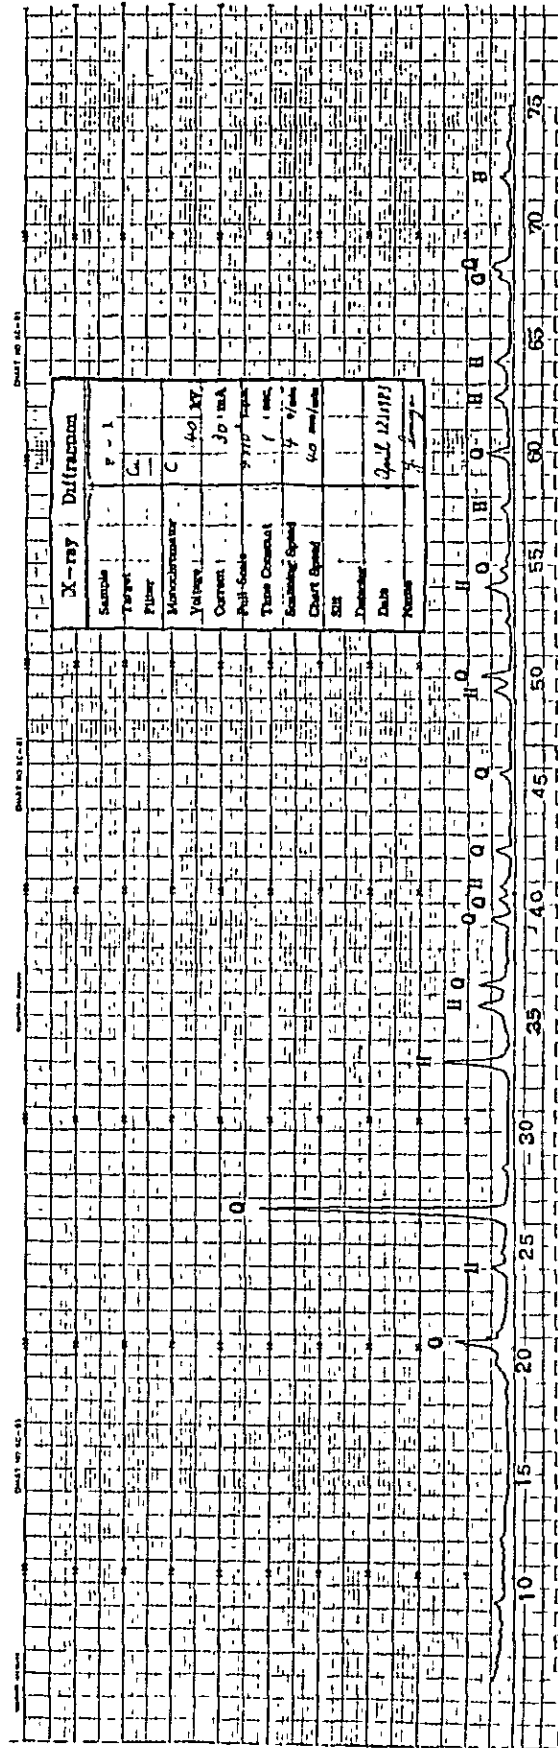 CHART NO SC-81
CHART NO SC-81
CHART NO SC-81
X-ray Diffraction
Sample F - 1
Target Cu
Filter
Monochromator C
Voltage 40 KV
Current 30 mA
Full-Scale cps
Time Constant 1 sec
Scanning Speed 4 °/min
Chart Speed 40 mm/min
Slit
Detector
Date April 12, 1983
Name
Q H Q H H Q Q Q H Q Q H Q H Q H Q H H Q Q H
10 15 20 25 30 35 40 45 50 55 60 65 70 75